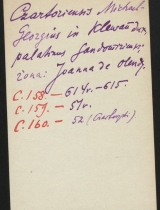 Czartoriensis Michael-
Georgius in Klewan dux
palatinus Sandomirien.
zona: Joanna de Olend.
C. 158 — 614v. – 615.
C. 159. — 51v.
C. 160. — 52 (Czartoryski)